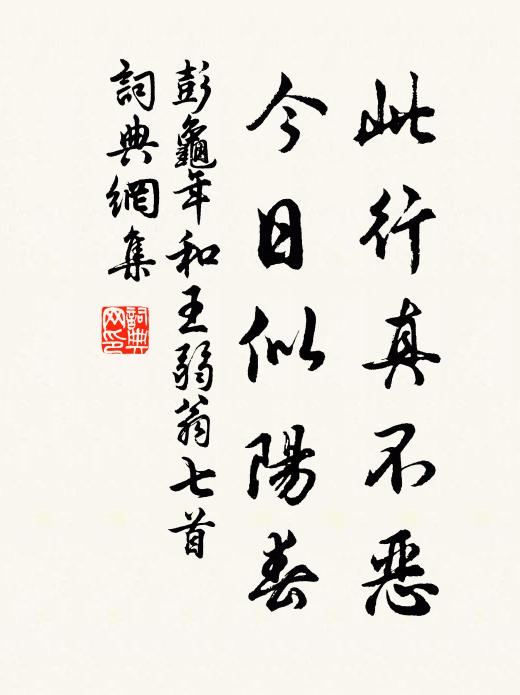 此行真不惡
今日似陽春
彭龜年和王弱翁七首
詞典網集
詞典网印